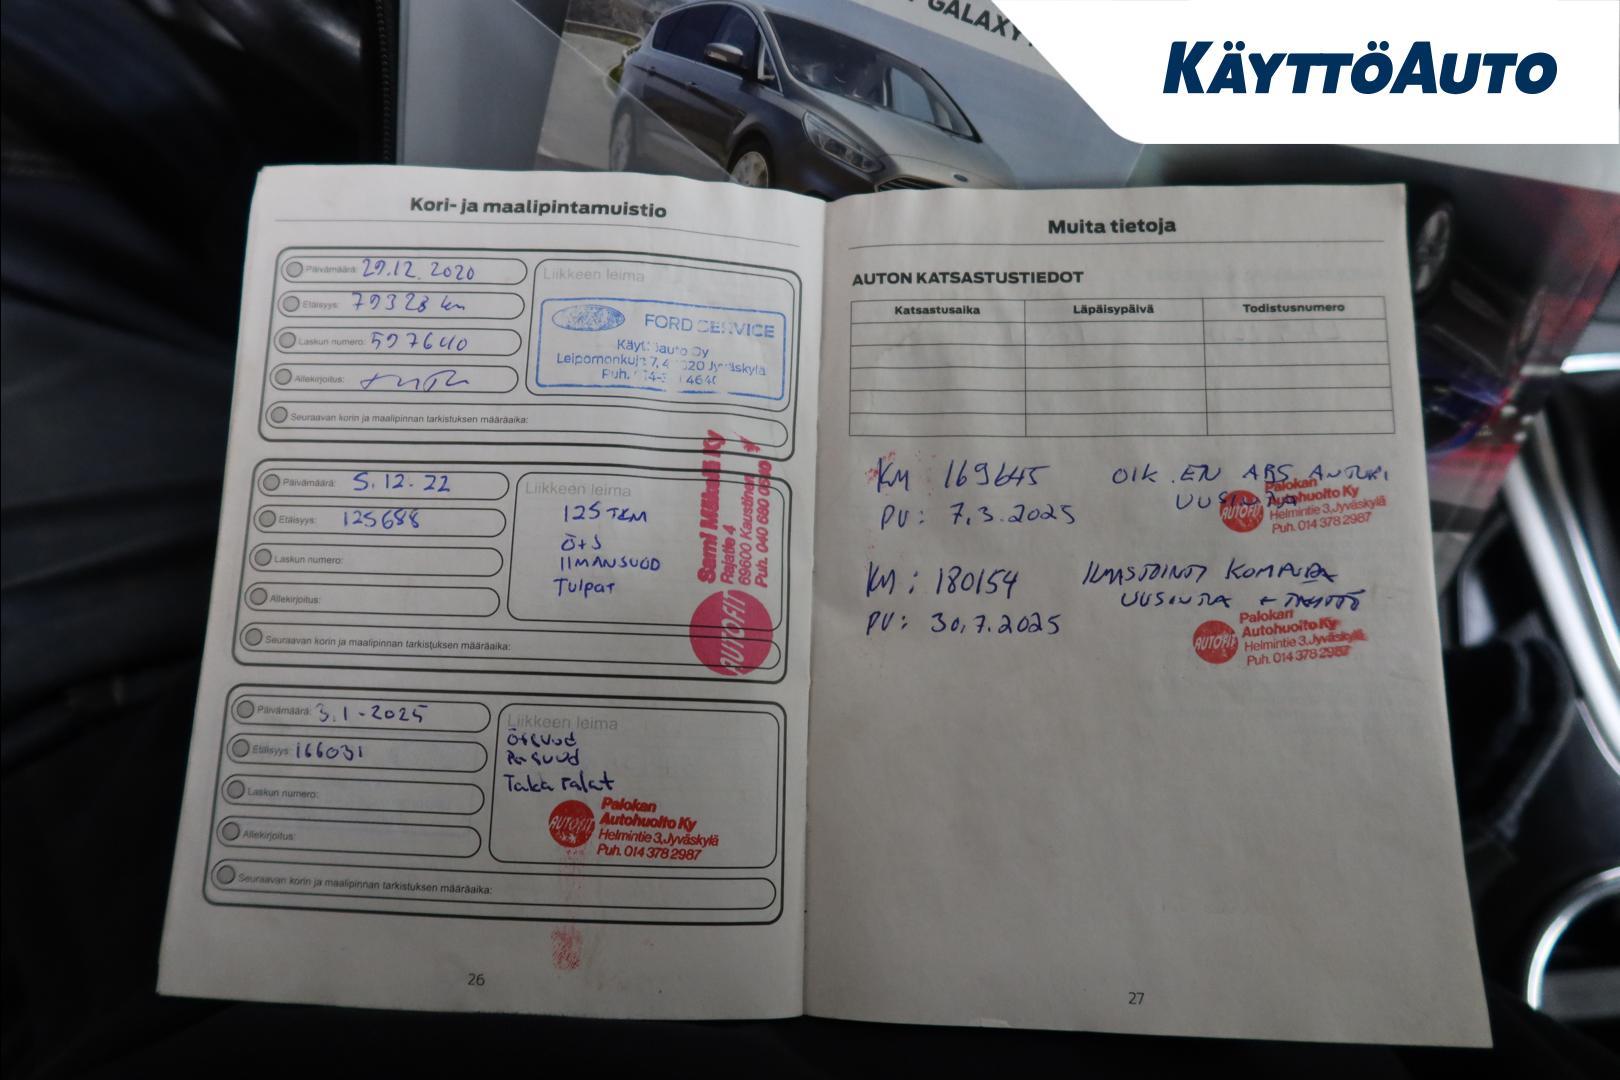 GALAXY
KÄYTTÖAUTO
Kori- ja maalipintamuistio
Päivämäärä: 29.12.2020
Etäisyys: 79328 km
Laskun numero: 597640
Allekirjoitus:
Seuraavan korin ja maalipinnan tarkistuksen määräaika:
Liikkeen leima
FORD SERVICE
Leipomonkuja 7, Jyväskylä
Puh.
Päivämäärä: 5.12.22
Etäisyys: 125688
Laskun numero:
Allekirjoitus:
Seuraavan korin ja maalipinnan tarkistuksen määräaika:
Liikkeen leima
125 TKM
Ö+S
IIMANSUOD
Tulpat
AUTOFIT
Rajatie 4
69600 Kaustinen
Puh. 040 680
Päivämäärä: 3.1-2025
Etäisyys: 166031
Laskun numero:
Allekirjoitus:
Seuraavan korin ja maalipinnan tarkistuksen määräaika:
Liikkeen leima
Ö+suod
Taka Palat
AUTOFIT
Palokan
Autohuolto Ky
Helmintie 3, Jyväskylä
Puh. 014 378 2987
26
Muita tietoja
AUTON KATSASTUSTIEDOT
Katsastusaika Läpäisypäivä Todistusnumero
KM 169645 OIK .EN ABS-ANTURI
PV: 7.3.2025 UUSINTA
AUTOFIT
Palokan
Autohuolto Ky
Helmintie 3, Jyväskylä
Puh. 014 378 2987
KM: 180154 ILMASTOINTI
PV: 30.7.2025 UUSINTA + TÄYTTÖ
AUTOFIT
Palokan
Autohuolto Ky
Helmintie 3, Jyväskylä
Puh. 014 378 2987
27